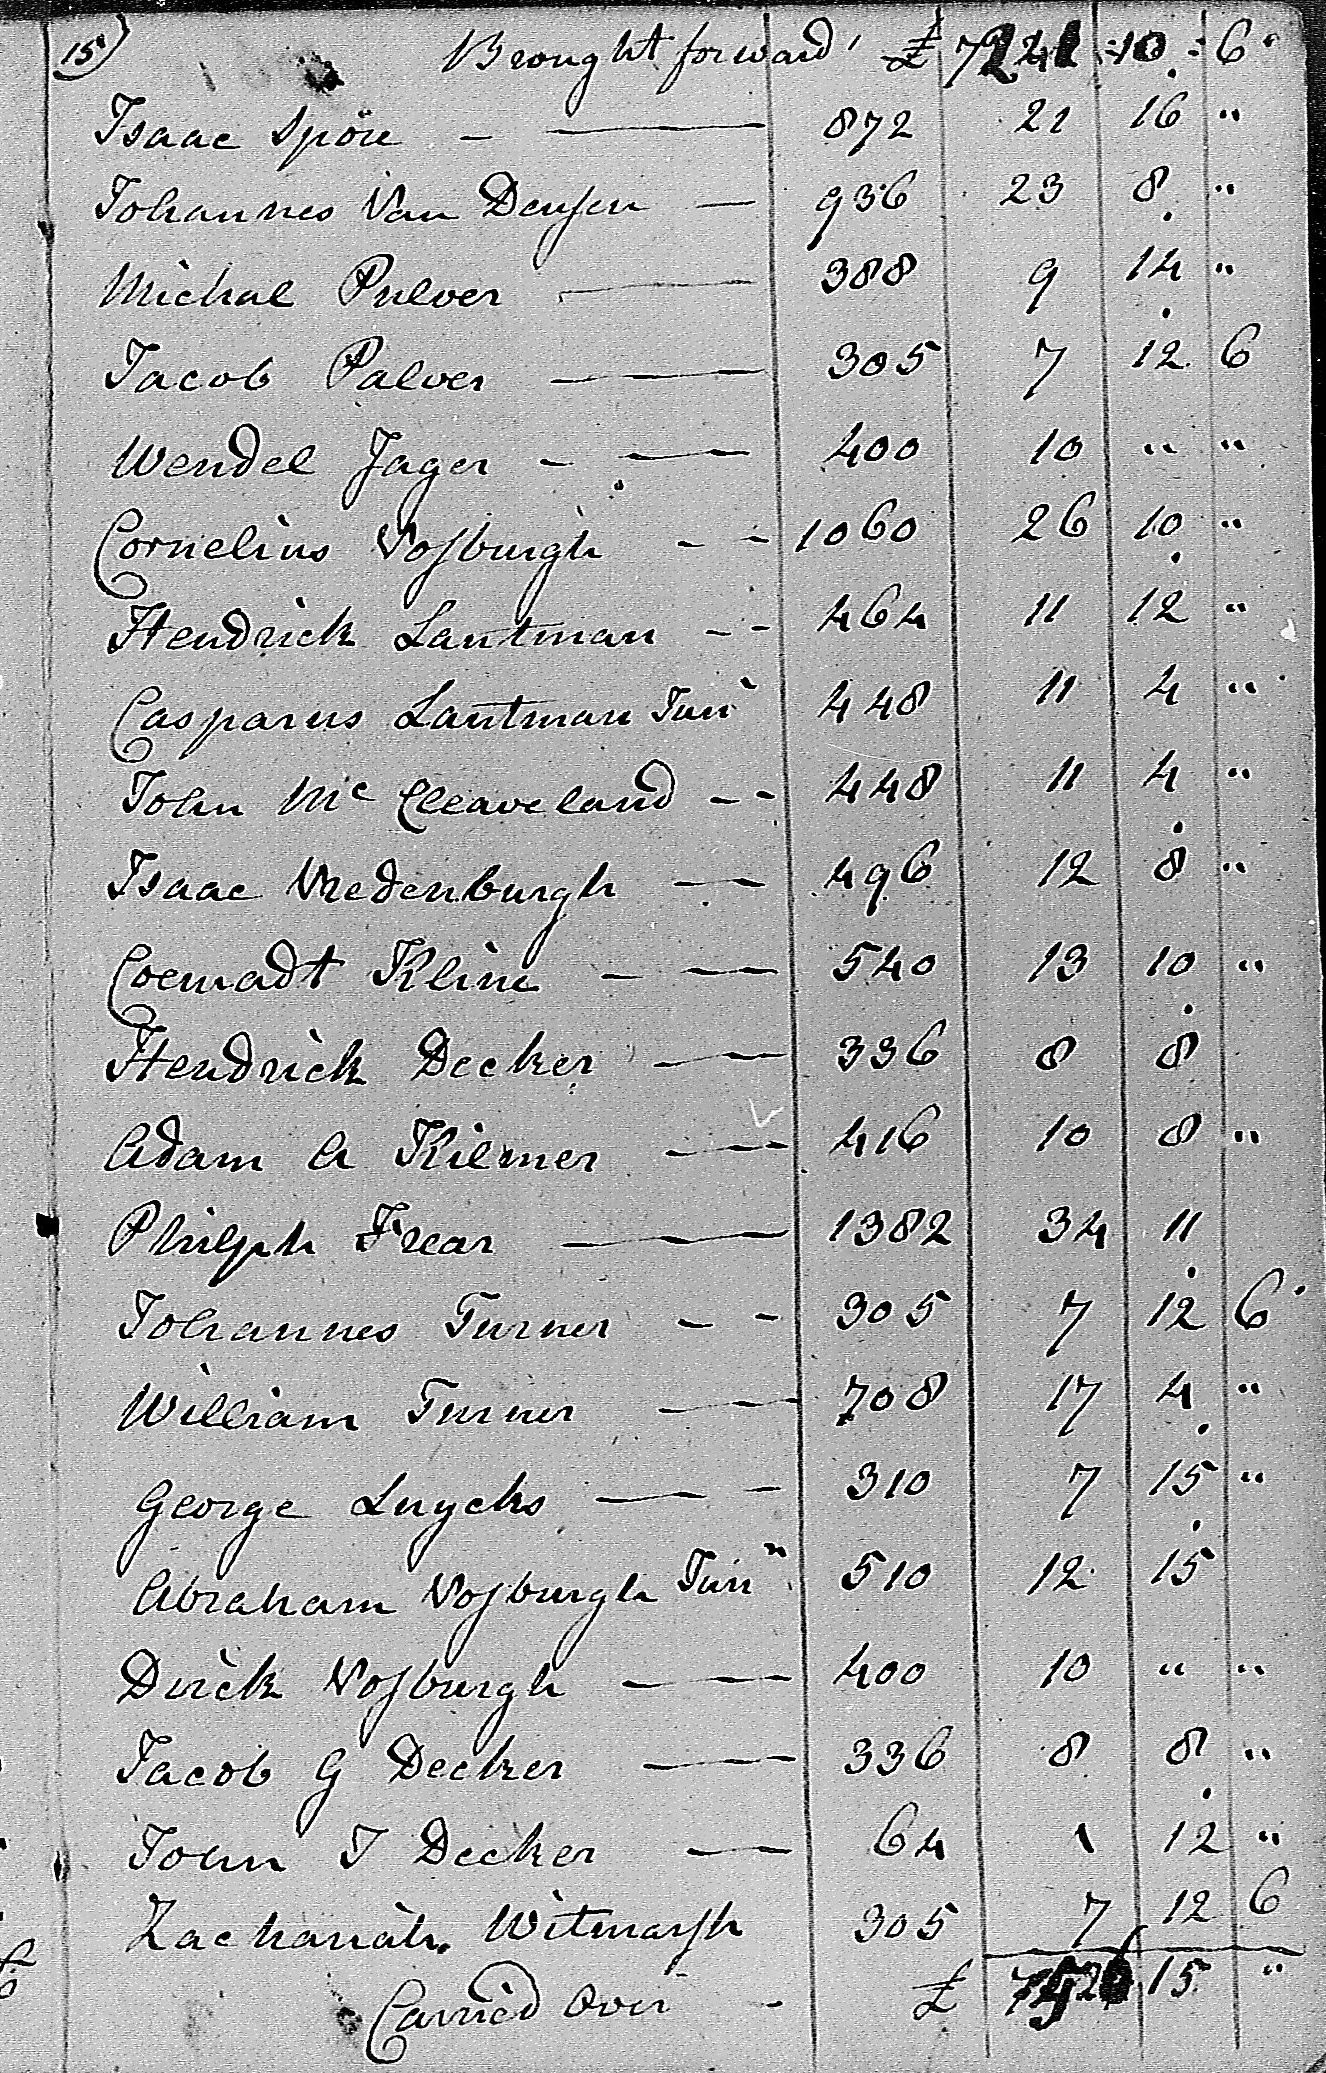 15) Brought forward £ 7221 : 10 : 6
Isaac Spoor - — 872 21 16 "
Johannes Van Deusen — 936 23 8 "
Michal Pulver — 388 9 14 "
Jacob Palver — 305 7 12 6
Wendel Jager - — 400 10 " "
Cornelius Vosburgh - - 1060 26 10 "
Hendrick Lantman - - 464 11 12 "
Casparus Lantman Junr 448 11 4 "
John Mc Cleaveland - - 448 11 4 "
Isaac Vredenburgh — 496 12 8 "
Coenradt Kline - — 540 13 10 "
Hendrick Decker — 336 8 8
Adam A Kilmer — 416 10 8 "
Philiph Frear — 1382 34 11
Johannes Turner - - 305 7 12 6
William Turner — 708 17 4 "
George Luycks — - 310 7 15 "
Abraham Vosburgh Junr 510 12 15
Dirck Vosburgh — 400 10 " "
Jacob G Decker — 336 8 8 "
John J Decker — 64 1 12 "
Zachariah Witmarsh 305 7 12 6
Carried Over - £ 15 "